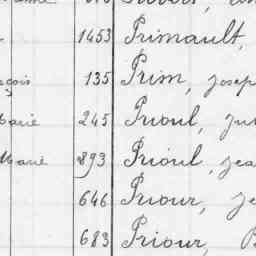 1453 Primault,
çois 135 Prim, Josep
Marie 245 Prioul, Ju
Marie 893 Prioul, Jea
646 Priour, Je
683 Priour, P